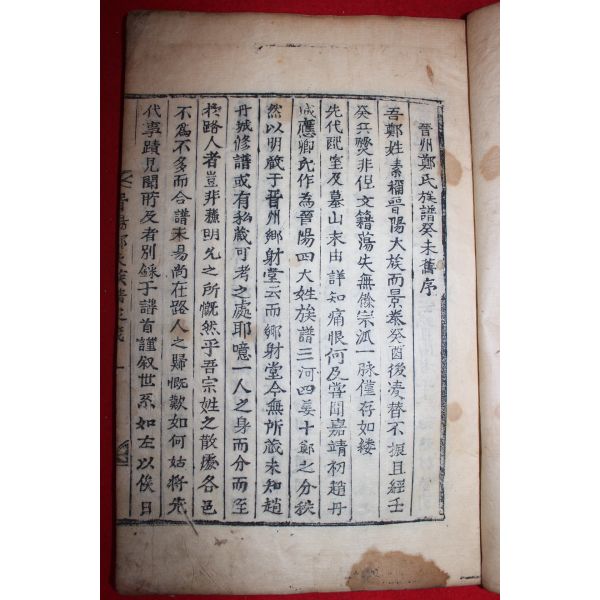 晉州鄭氏族譜癸未舊序
吾鄭姓素稱晉陽大族而景泰癸酉後凌替不振且經壬
癸兵燹非但文籍蕩失無餘宗派一脉僅存如縷
先代配室及墓山末由詳知痛恨何及嘗聞嘉靖初趙丹
城應卿氏作為晉陽四大姓族譜三河四姜十鄭之分秩
然以明藏于晉州鄉射堂云而鄉射堂今無所藏未知趙
丹城修譜或有私藏可考之處耶噫一人之身而分而至
於路人者豈非蘓明允之所慨然乎吾宗姓之散處各邑
不為不多而合譜未易尚在路人之歸慨歎如何姑將先
代事蹟見聞所及者別錄于譜首謹叙世系如左以俟日
晉陽鄭氏族譜